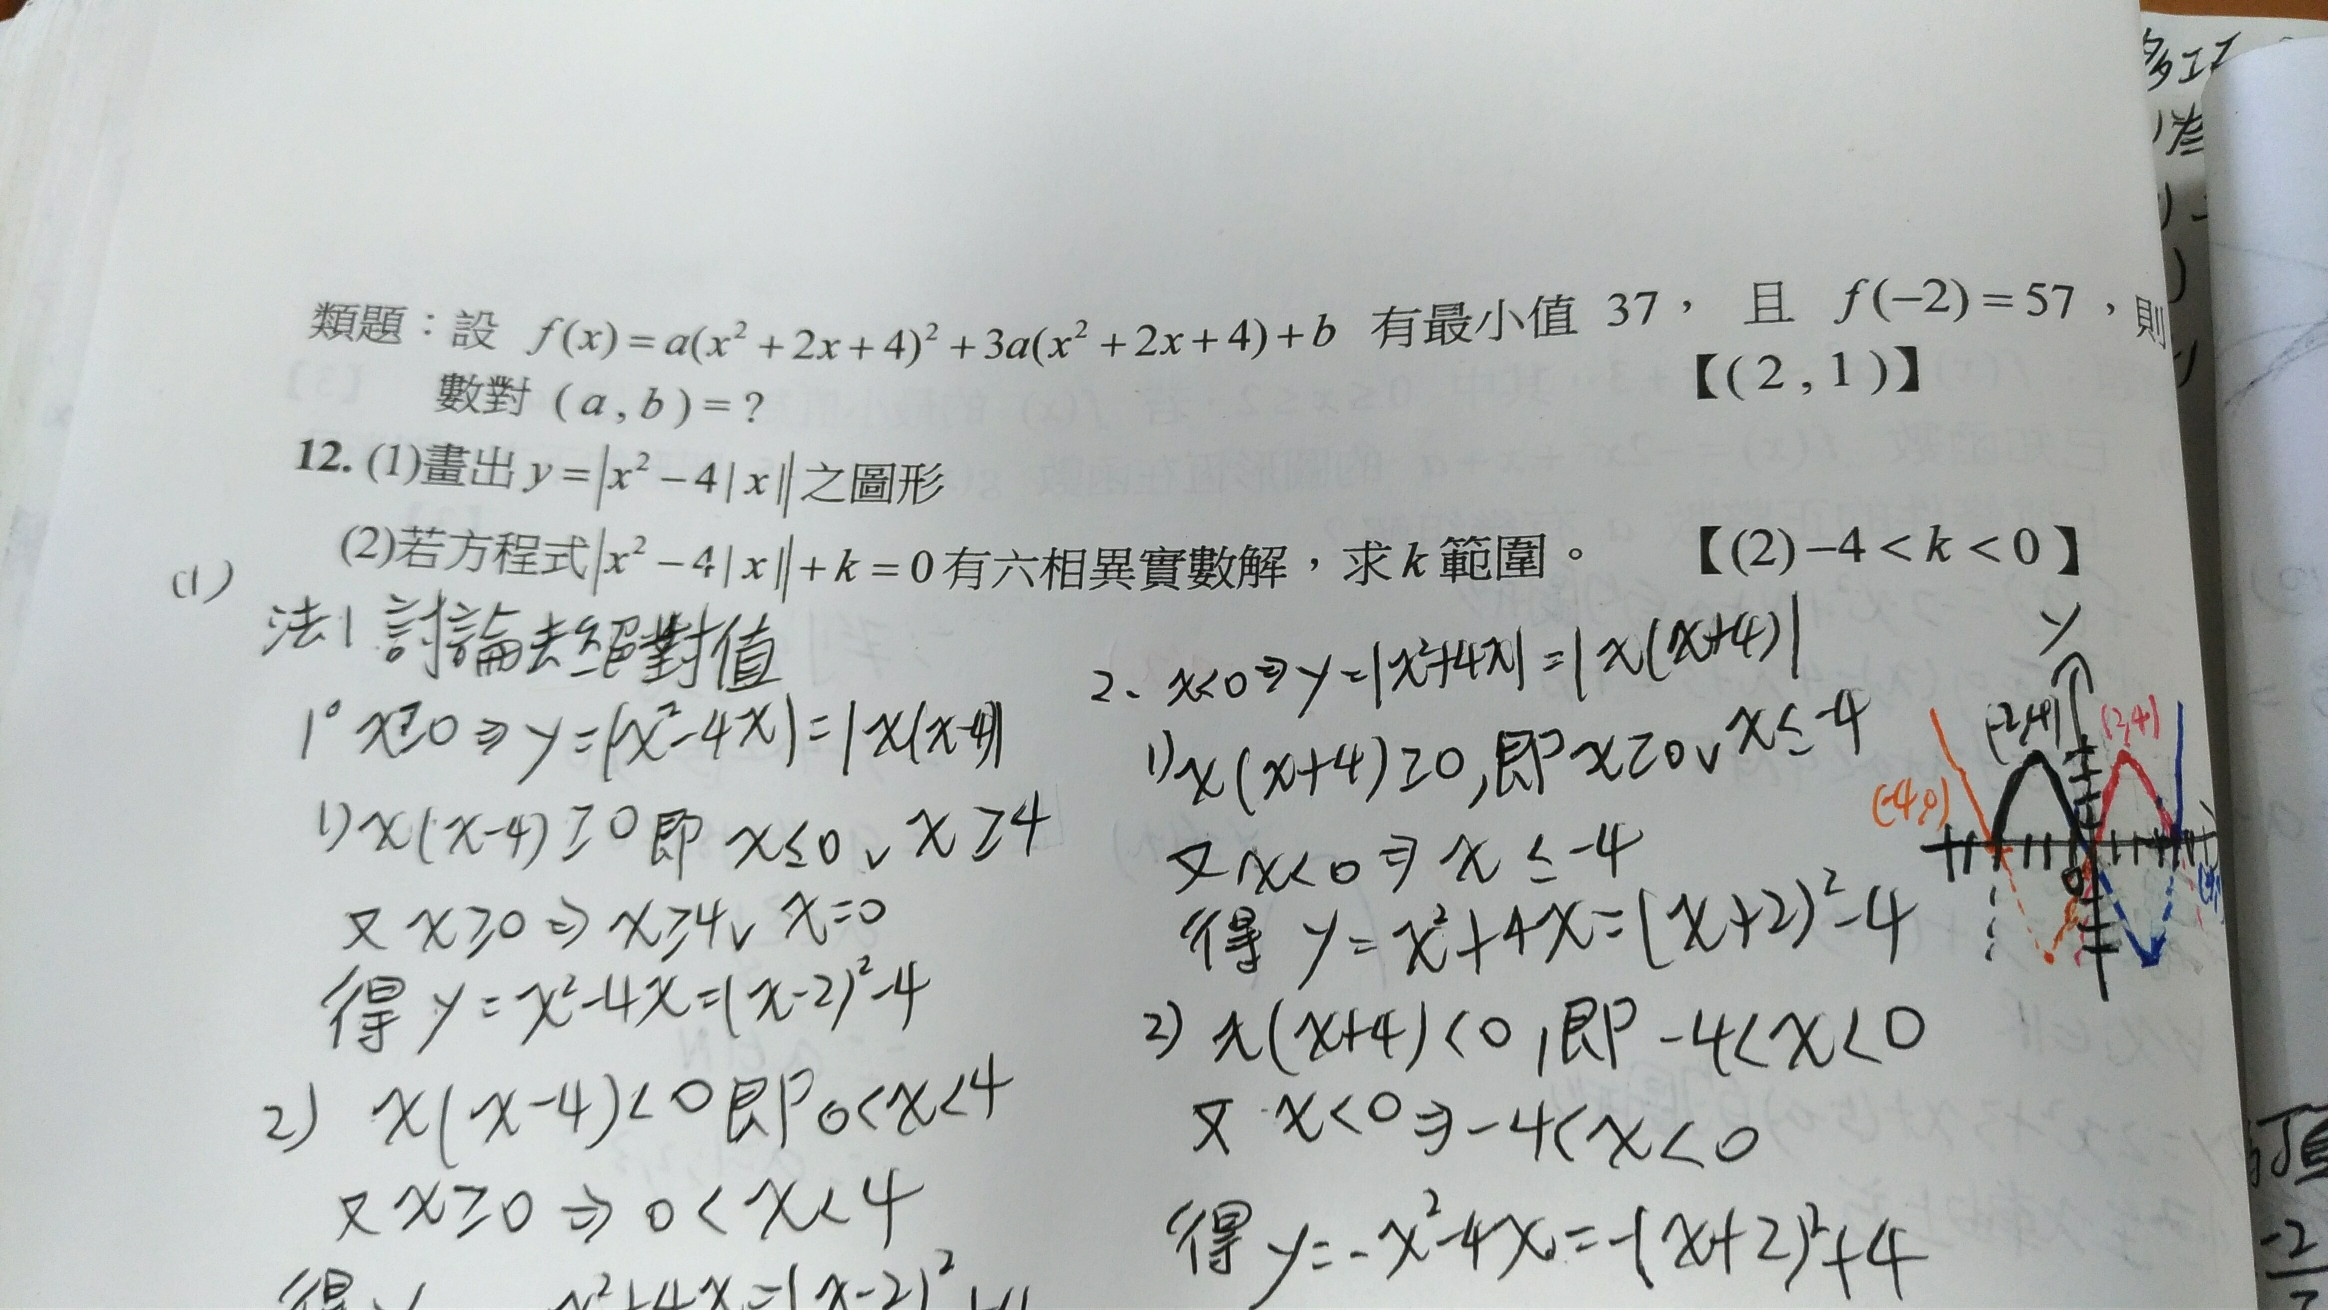 類題：設 f(x)=a(x²+2x+4)²+3a(x²+2x+4)+b 有最小值 37， 且 f(−2)=57，則
數對 (a,b)=? 【(2,1)】
12. (1)畫出 y=|x²−4|x|| 之圖形
(2)若方程式|x²−4|x||+k=0有六相異實數解，求k範圍。 【(2)−4<k<0】
(1)
法1 討論去絕對值
1° x≥0 ⇒ y=|x²-4x|=|x(x-4)|
1) x(x-4)≥0 即 x≤0 ∨ x≥4
又 x≥0 ⇒ x≥4 ∨ x=0
得 y=x²-4x=(x-2)²-4
2) x(x-4)<0 即 0<x<4
又 x≥0 ⇒ 0<x<4
得 x²+4x=-(x-2)²
2、x<0 ⇒ y=|x²+4x|=|x(x+4)|
1) x(x+4)≥0,即 x≥0 ∨ x≤-4
又 x<0 ⇒ x≤-4
得 y=x²+4x=(x+2)²-4
2) x(x+4)<0,即 -4<x<0
又 x<0 ⇒ -4<x<0
得 y=-x²-4x=-(x+2)²+4
y
(-2,4) (2,4)
(-4,0)
0
多工